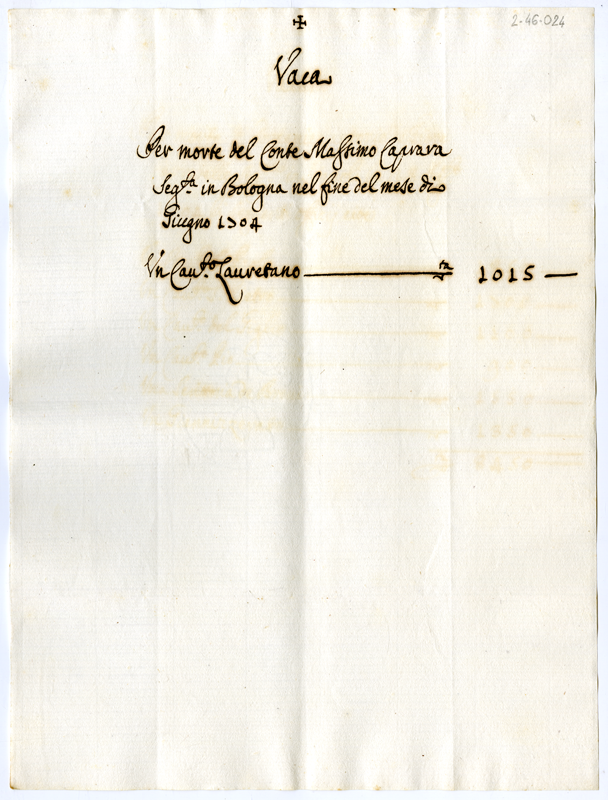 2-46-024
✠
Vaca
Per morte del Conte Massimo Caprara
seg.ta in Bologna nel fine del mese di
Giugno 1704
Un Cau.to Lauretano — 1015 —